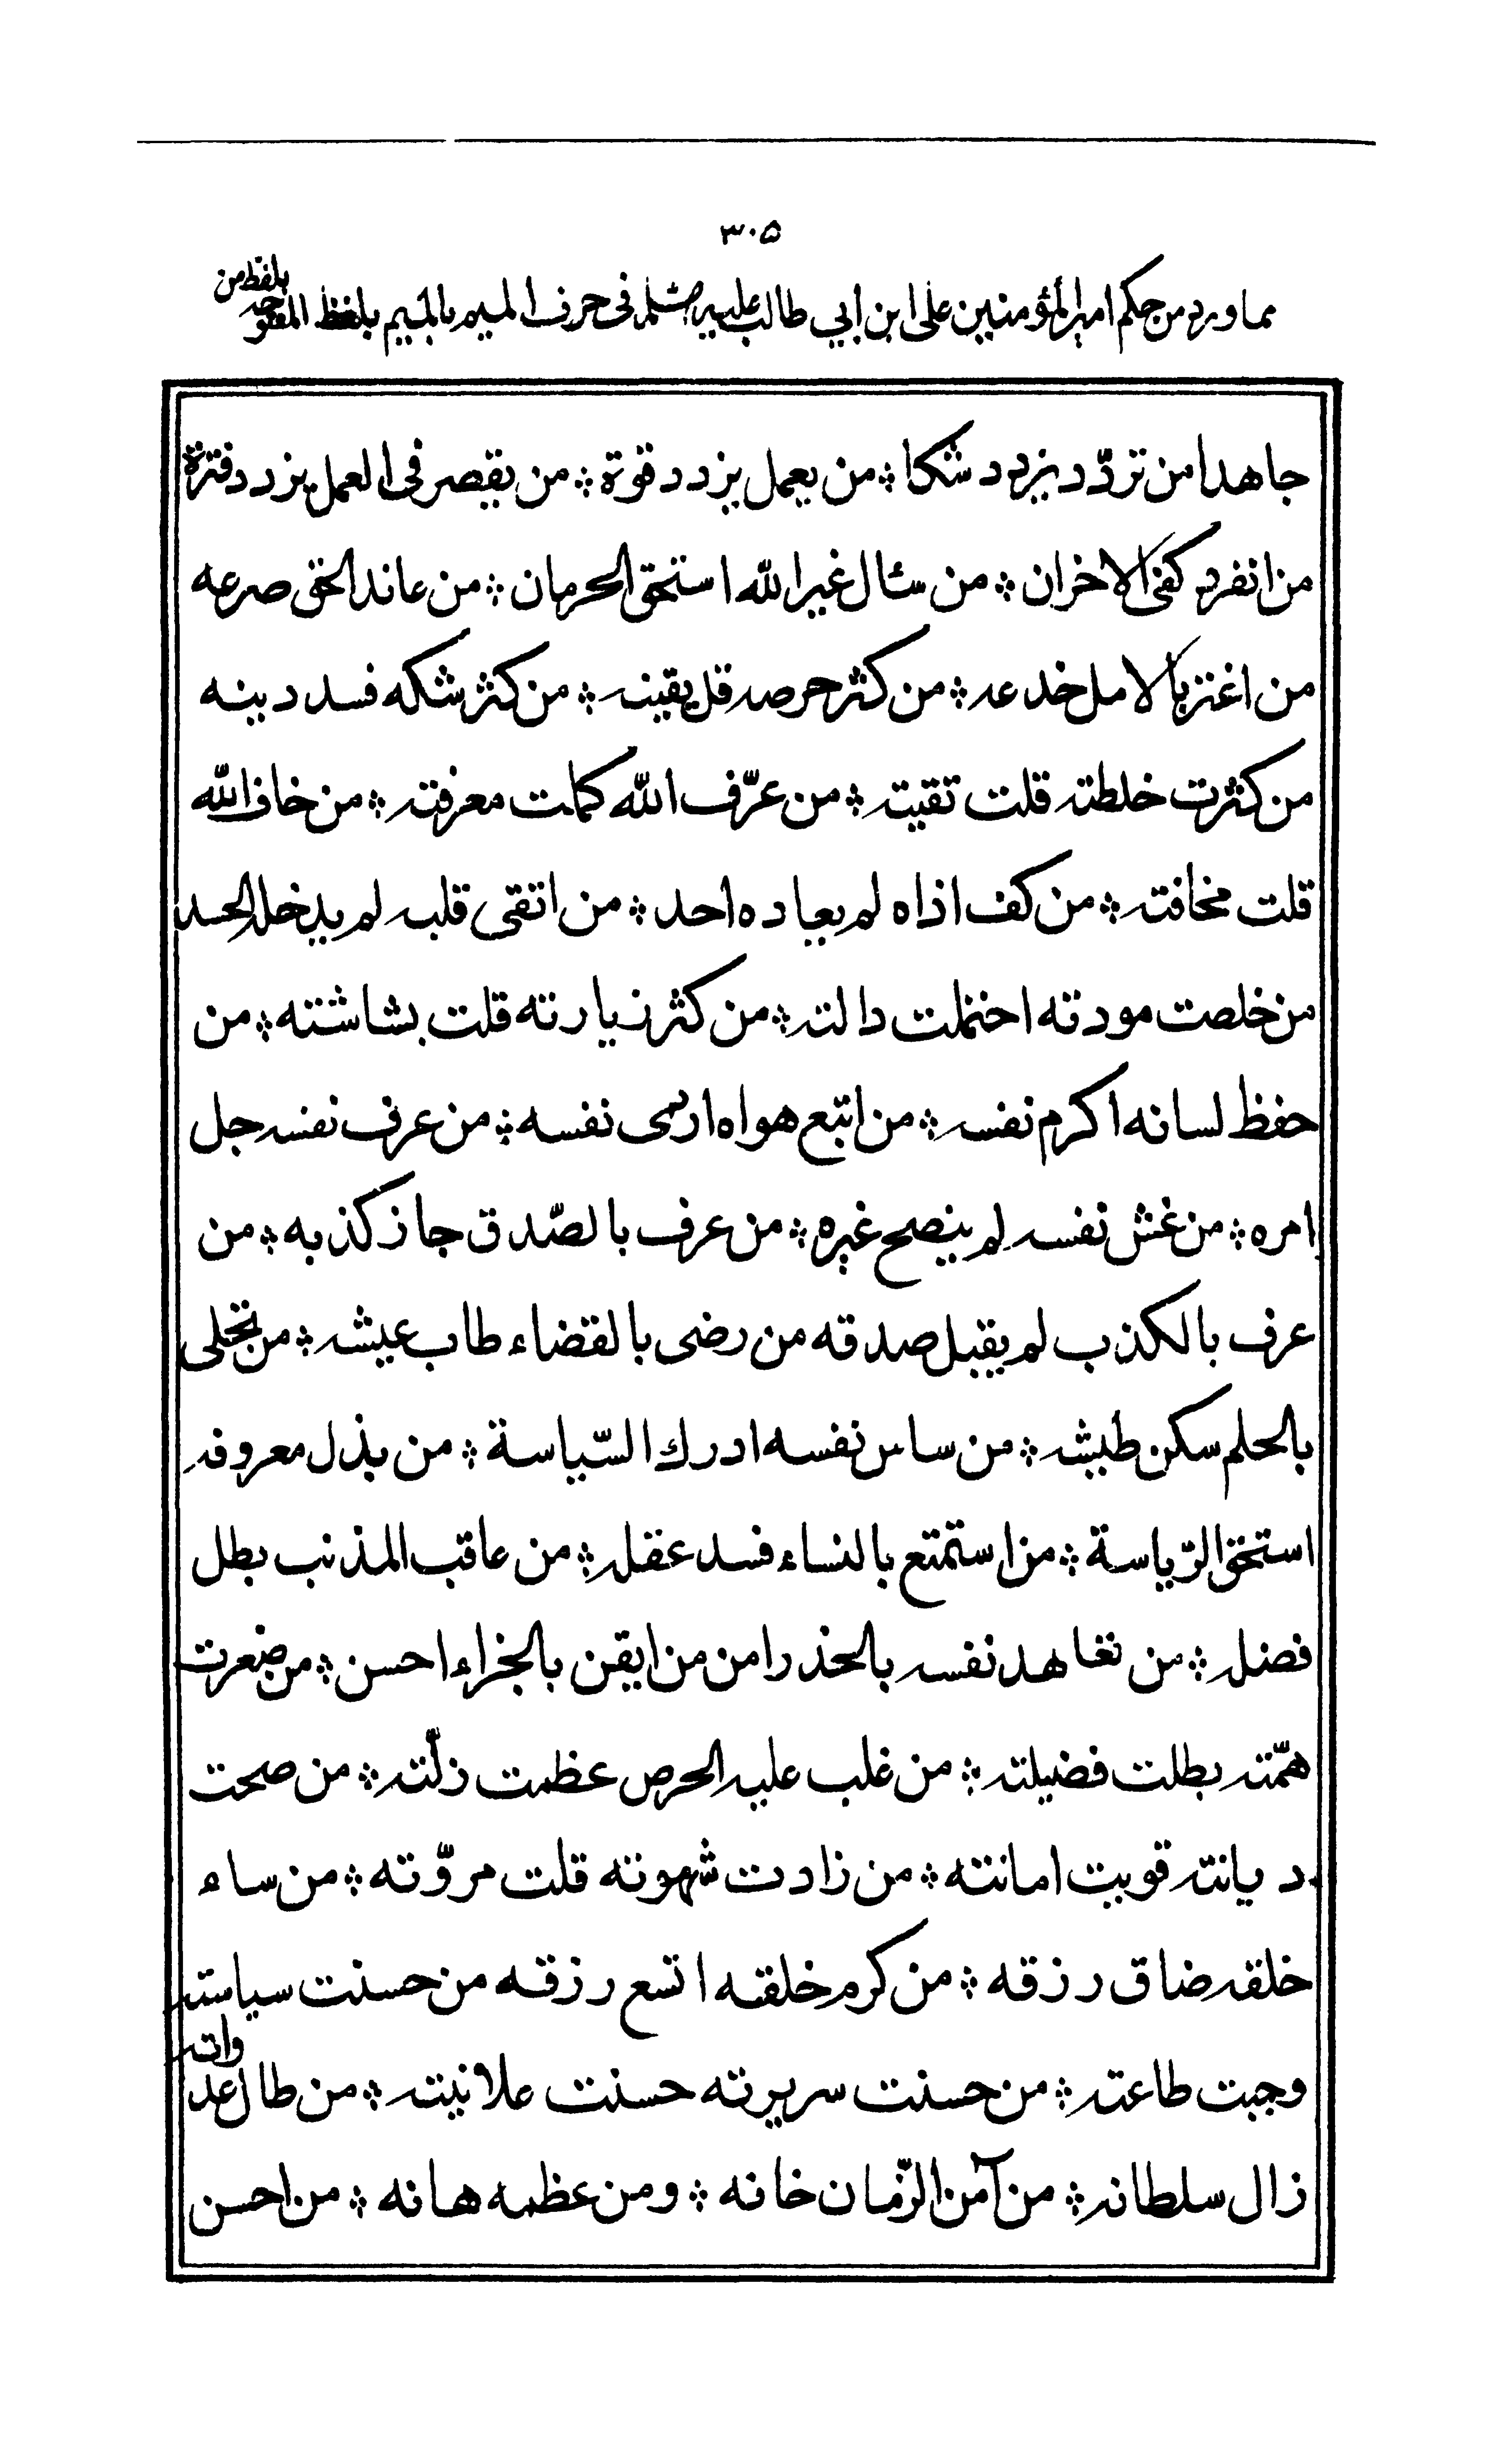 ٣٠٥
مما ورد من حكم امير المؤمنين على ابن ابي طالب عليه في حرف الميم بالميم بلفظ المفتوحه بلفظ من
جاهدا من تردّد يزدد شكا ؞ من يعمل يزدد قوة ؞ من يقصر فى العمل يزدد فترة
من انفرد كفى الاخزان ؞ من سئال غير الله استحق الحرمان ؞ من عاند الحق صرعه
من اغتر بالامل خدعه ؞ من كثر حرصه قل يقينه ؞ من كثر شكه فسد دينه
من كثرت خلطته قلت تقيته ؞ من عرّف الله كملت معرفته ؞ من خاف الله
قلت مخافته ؞ من كف اذاه لم يعاده احد ؞ من اتقى قلبه لم يدخله الحسد
من خلصت مودته احتملت دالته ؞ من كثر زيارته قلت بشاشته ؞ من
حفظ لسانه اكرم نفسه ؞ من اتبع هواه اردى نفسه ؞ من عرف نفسه جل
امره ؞ من غش نفسه لم ينصح غيره ؞ من عرف بالصّدق جاز كذبه ؞ من
عرف بالكذب لم يقبل صدقه من رضى بالقضاء طاب عيشه ؞ من تحلى
بالحلم سكن طيشه ؞ من ساس نفسه ادرك السّياسة ؞ من بذل معروفه
استحق الرّياسة ؞ من استمتع بالنساء فسد عقله ؞ من عاقب المذنب بطل
فضله ؞ من تعاهد نفسه بالحذر امن من ايقن بالجزاء احسن ؞ من صغرت
همّته بطلت فضيلته ؞ من غلب عليه الحرص عظمت زلّته ؞ من صحت
ديانته قويت امانته ؞ من زادت شهوته قلت مروّته ؞ من ساء
خلقه ضاق رزقه ؞ من كرم خلقه اتسع رزقه من حسنت سياسته
وجبت طاعته ؞ من حسنت سريرته حسنت علانيته ؞ من طال عدوانه
زال سلطانه ؞ من آمن الزّمان خانه ؞ ومن عظمه هانه ؞ من احسن